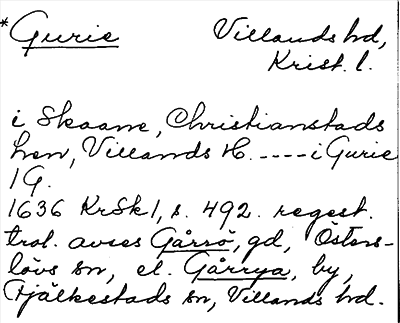 *Gurie Villands hd,
Krist. l.
i Skaane, Christianstads
Len, Villands H. ---- i Gurie
1 G.
1636 KrSk1, s. 492. regest.
trol. avses Gårsö, gd, Östers-
lövs sn, el. Gårrya, by,
Fjälkestads sn, Villands hd.